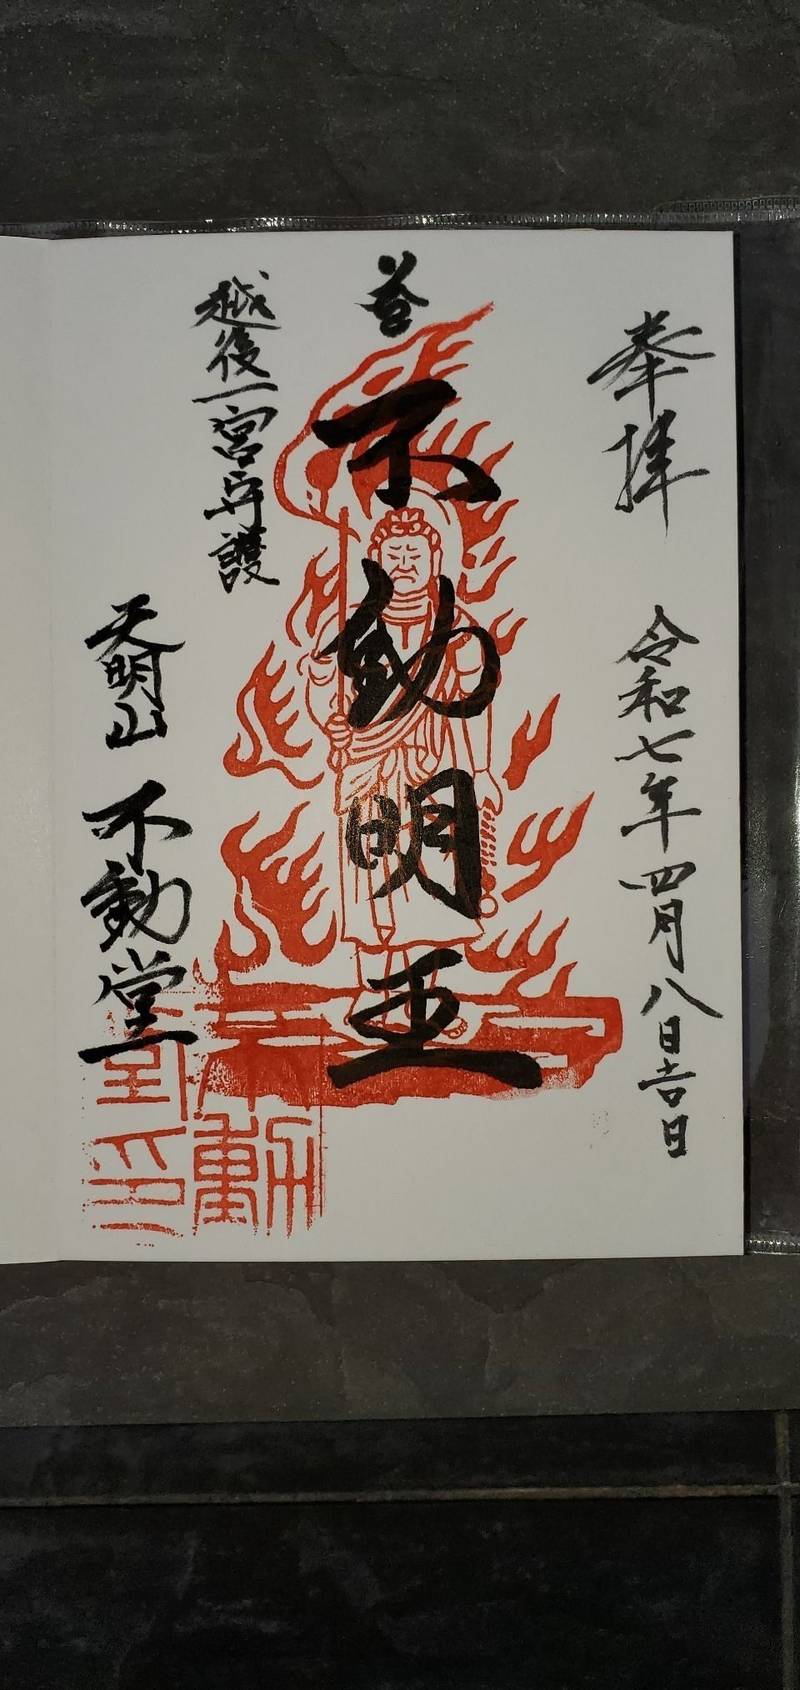 奉拝
令和七年四月八日吉日
不動明王
越後一宮守護
天明山 不動堂